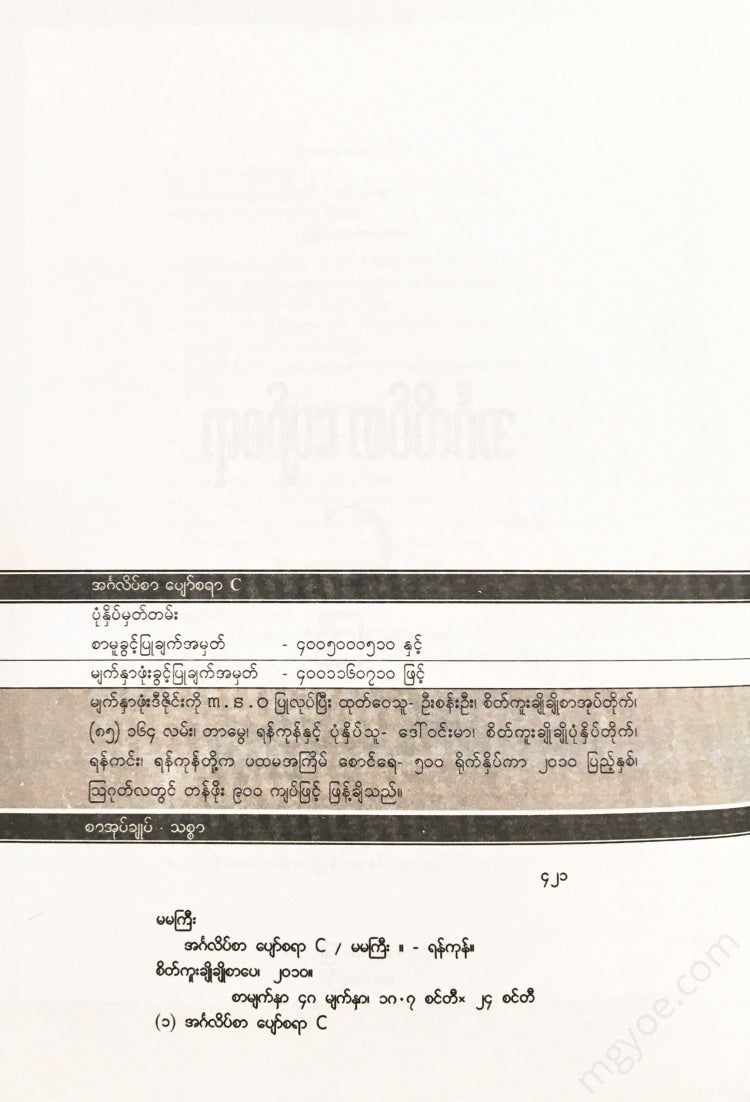 အင်္ဂလိပ်စာ ပျော်စရာ C
ပုံနှိပ်မှတ်တမ်း
စာမူခွင့်ပြုချက်အမှတ် - ၄၀၀၅၀၀၀၅၁၀ နှင့်
မျက်နှာဖုံးခွင့်ပြုချက်အမှတ် - ၄၀၀၁၁၆၀၇၁၀ ဖြင့်
မျက်နှာဖုံးဒီဇိုင်းကို m . s . o ပြုလုပ်ပြီး ထုတ်ဝေသူ- ဦးစန်းဦး၊ စိတ်ကူးချိုချိုစာအုပ်တိုက်၊
(၈၅) ၁၆၄ လမ်း၊ တာမွေ၊ ရန်ကုန်နှင့် ပုံနှိပ်သူ- ဒေါ်ဝင်းမာ၊ စိတ်ကူးချိုချိုပုံနှိပ်တိုက်၊
ရန်ကင်း၊ ရန်ကုန်တို့က ပထမအကြိမ် စောင်ရေ- ၅၀၀ ရိုက်နှိပ်ကာ ၂၀၁၀ ပြည့်နှစ်၊
ဩဂုတ်လတွင် တန်ဖိုး ၉၀၀ ကျပ်ဖြင့် ဖြန့်ချိသည်။
စာအုပ်ချုပ် - သစ္စာ
၄၂၁
မမကြီး
အင်္ဂလိပ်စာ ပျော်စရာ C / မမကြီး ။ - ရန်ကုန်။
စိတ်ကူးချိုချိုစာပေ၊ ၂၀၁၀။
စာမျက်နှာ ၄၈ မျက်နှာ၊ ၁၈.၇ စင်တီ× ၂၄ စင်တီ
(၁) အင်္ဂလိပ်စာ ပျော်စရာ C
mgyoe.com